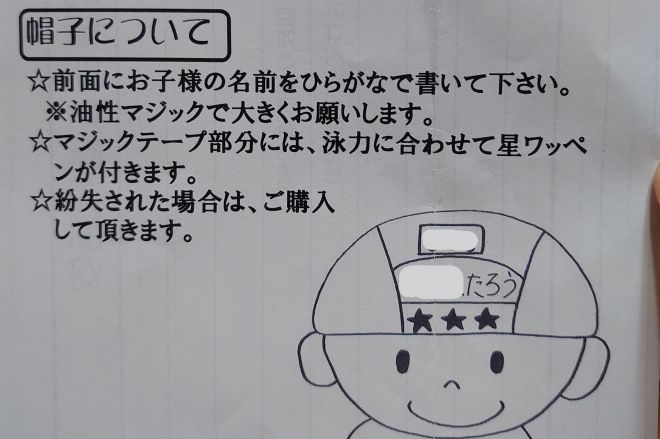 帽子について
☆前面にお子様の名前をひらがなで書いて下さい。
※油性マジックで大きくお願いします。
☆マジックテープ部分には、泳力に合わせて星ワッペ
ンが付きます。
☆紛失された場合は、ご購入
して頂きます。
たろう
★★★